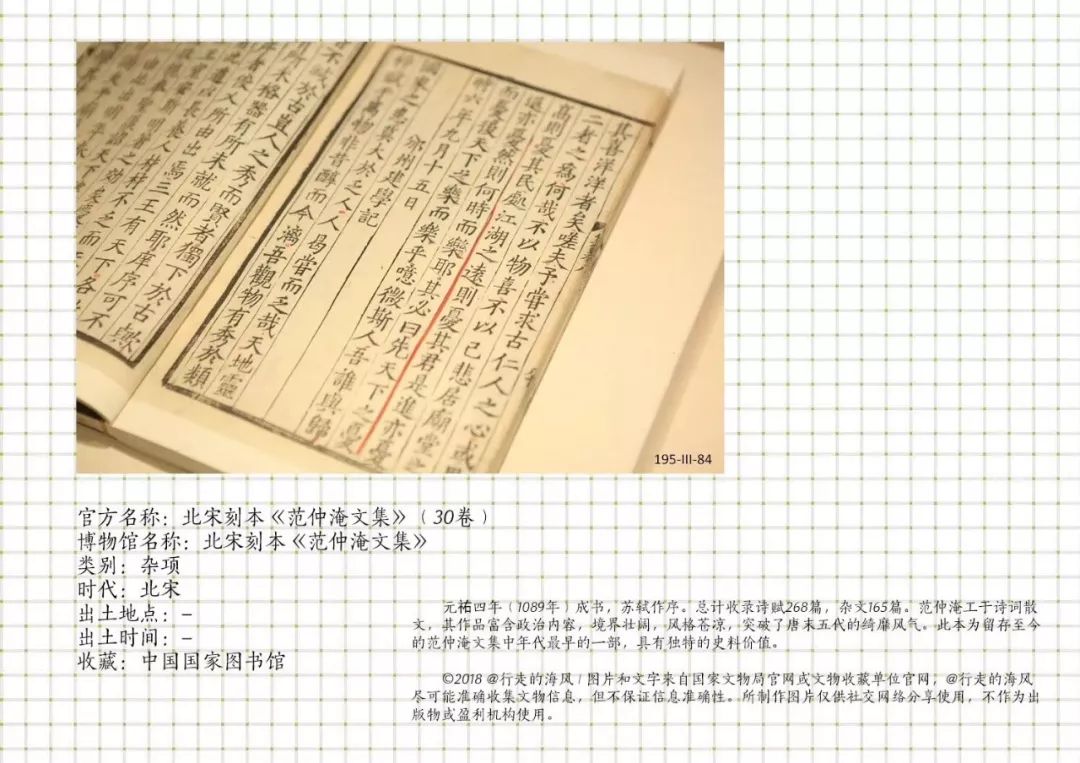 其喜洋洋者矣嗟夫予嘗求古仁人之心或異
二者之爲何哉不以物喜不以己悲居廟堂之
髙則憂其民處江湖之遠則憂其君是進亦憂
退亦憂然則何時而樂耶其必曰先天下之憂
而憂後天下之樂而樂乎噫微斯人吾誰與歸
時六年九月十五日
邠州建學記
國家之患莫大於乏人人曷嘗而乏哉天地靈
粹賦于萬物非昔醇而今漓吾觀物有秀於類
不減於古豈人之秀而賢者獨下於古歟
所未格器有所未就而然耶庠序可不
所由出焉三王有天下各
195-III-84
官方名称：北宋刻本《范仲淹文集》（30卷）
博物馆名称：北宋刻本《范仲淹文集》
类别：杂项
时代：北宋
出土地点：-
出土时间：-
收藏：中国国家图书馆
元祐四年（1089年）成书，苏轼作序。总计收录诗赋268篇，杂文165篇。范仲淹工于诗词散
文，其作品富含政治内容，境界壮阔，风格苍凉，突破了唐末五代的绮靡风气。此本为留存至今
的范仲淹文集中年代最早的一部，具有独特的史料价值。
©2018 @行走的海风 / 图片和文字来自国家文物局官网或文物收藏单位官网，@行走的海风
尽可能准确收集文物信息，但不保证信息准确性。所制作图片仅供社交网络分享使用，不作为出
版物或盈利机构使用。